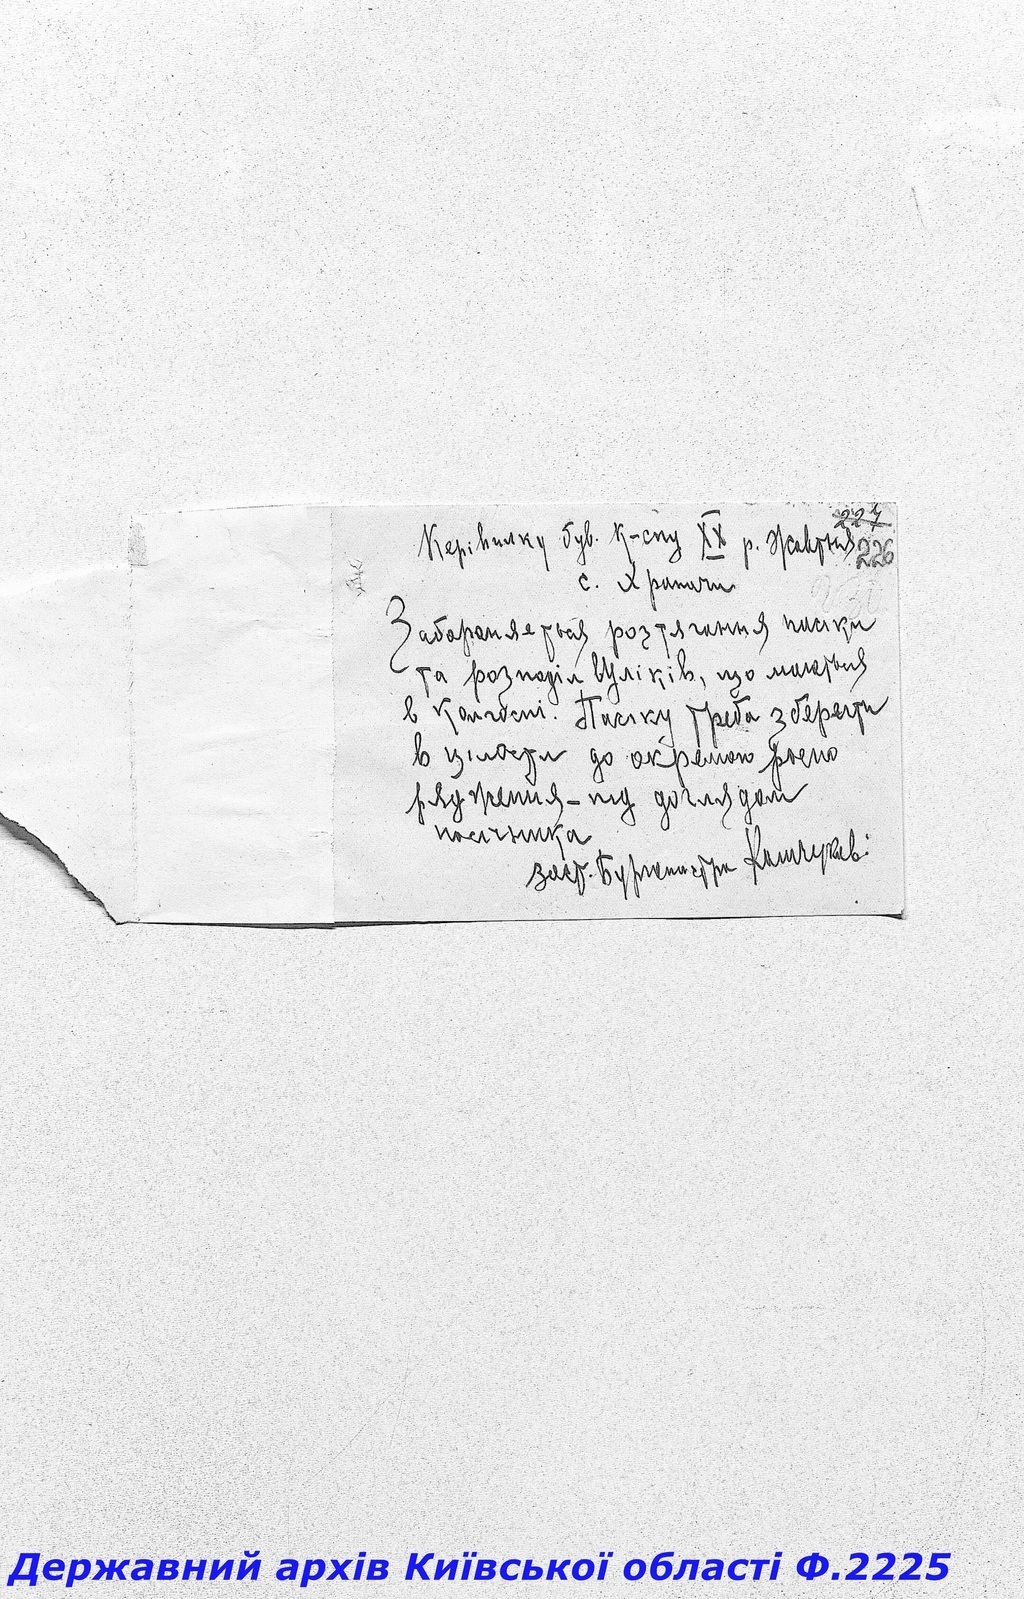 227
Керівнику був. к-спу XX р. Жовтня
226
с. Храпачи
Забороняеться розтягання пасіки
та розподіл вуліків, що маються
в колгоспі. Пасіку треба зберегти
в цілости до окремого розпо
рядження – під доглядом
пасічника
заст. Бурмомистра
Державний архів Київської області Ф.2225